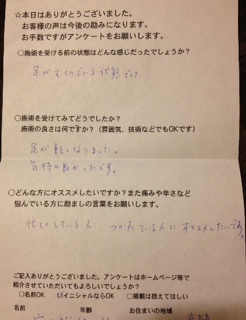 ☆本日はありがとうございました。
お客様の声は今後の励みになります。
お手数ですがアンケートをお願いします。
○施術を受ける前の状態はどんな感じだったでしょうか?
足がむくんでいる状態でした
○施術を受けてみてどうでしたか?
施術の良さは何ですか?(雰囲気、技術などでもOKです)
足が軽くなりました。
気持ち良かったです。
○どんな方にオススメしたいですか?また痛みや辛さなど
悩んでいる方に励ましの言葉をお願いします。
忙しくしている人、つかれている人にオススメしたいです。
ご記入ありがとうございました。アンケートはホームページ等で
紹介させていただいてもよろしいでしょうか?
□名前OK ☑イニシャルならOK □掲載は控えてほしい
名前 年齢 お住まいの地域